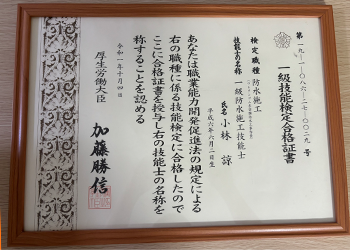 第一九-一-〇八六-二七-〇〇二九号
一級技能検定合格証書
検定職種 防水施工
技能士の名称 一級防水施工技能士
氏名 小林 諒
平成六年六月二日生
あなたは職業能力開発促進法の規定による
右の職種に係る技能検定に合格したので
ここに合格証書を授与し右の技能士の名称を
称することを認める
令和一年十月四日
厚生労働大臣
加藤勝信